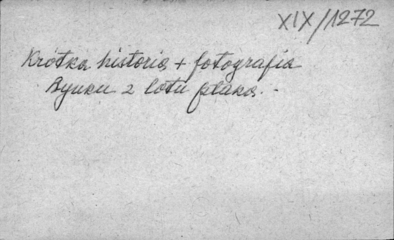 XIX/1272
Krótka historia + fotografia
Rynku z lotu ptaka.-